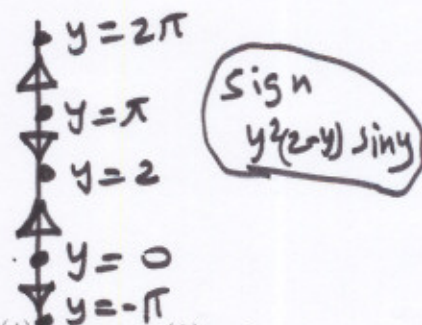 y = 2π
y = π
y = 2
y = 0
y = -π
sign
y²(2-y) siny